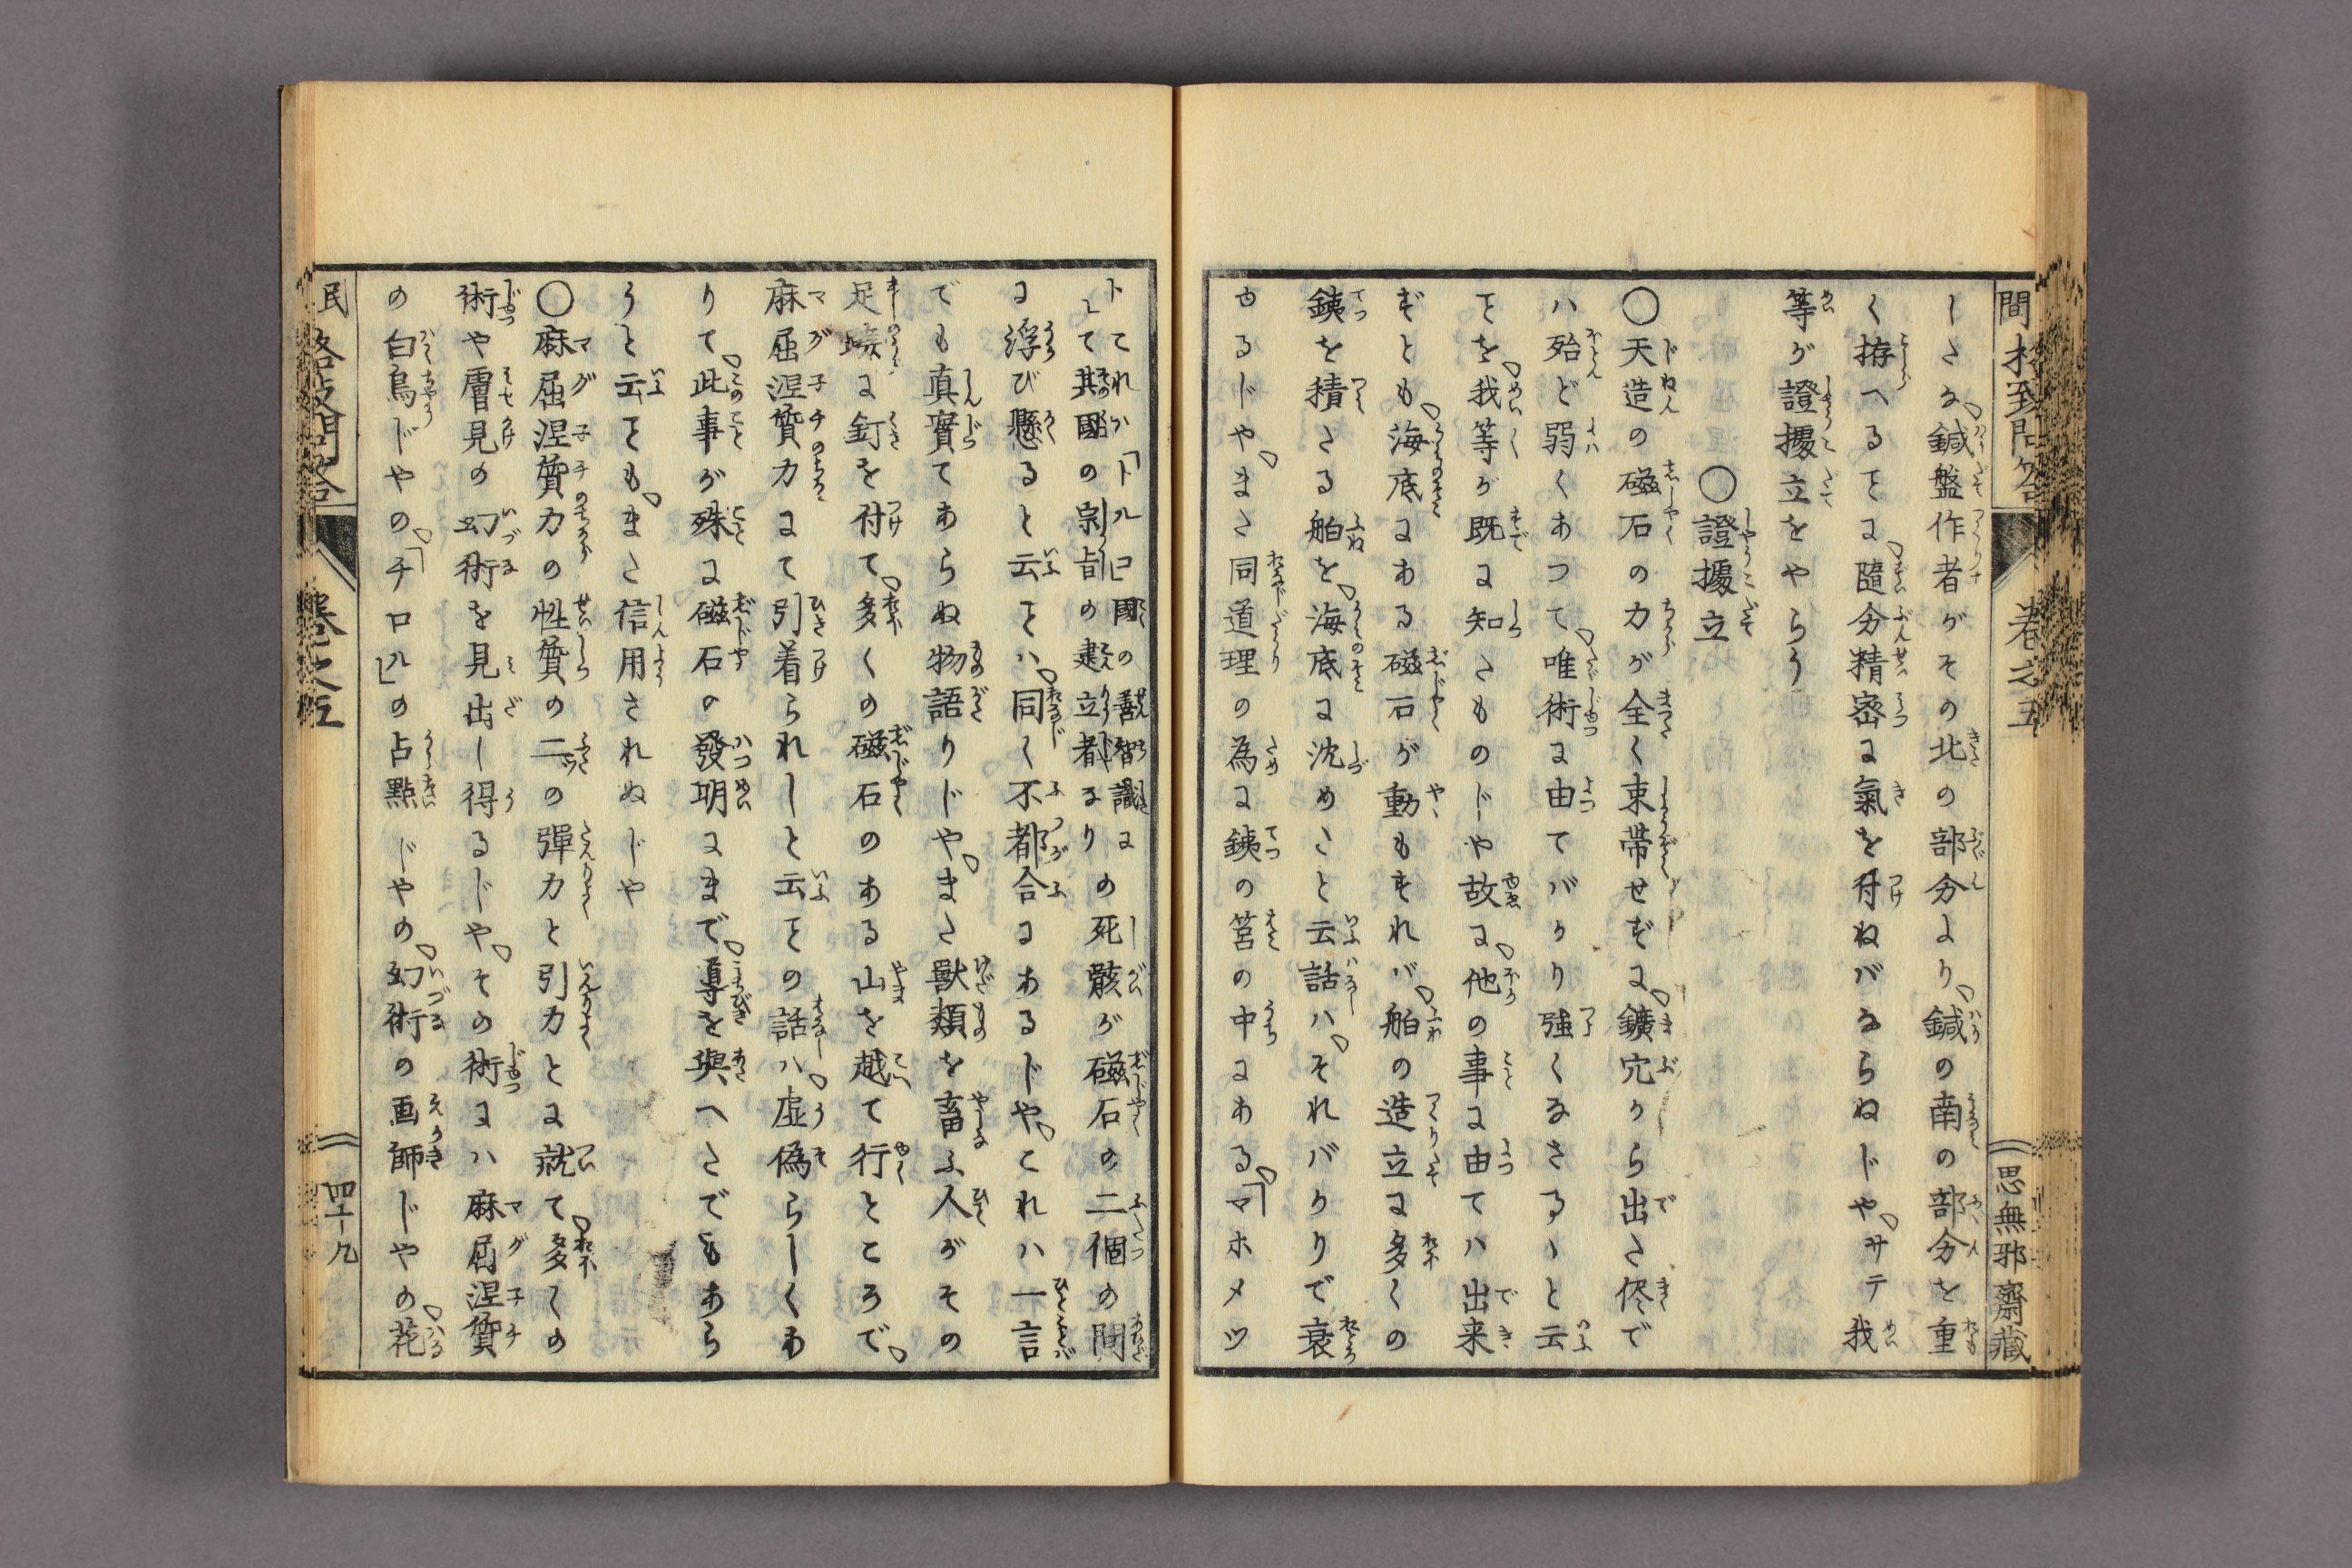 間格致問答
巻之五
思無邪齋藏
しさな鍼盤作者がその北の部分より鍼の南の部分を重
く拵へるヿに隨分精密に氣を付ねバならぬじやサテ我
等が證據立をやらう
○證據立
○天造の磁石の力が全く束帯せずに鑛穴から出た侭で
ハ殆ど弱くあつて唯術に由てバかり強くなさるゝと云
ヿを我等が既に知たものじや故に他の事に由てハ出来
ずとも海底にある磁石が動もすれバ舶の造立に多くの
銕を積たる舶を海底に沈めたと云話ハそれバかりで衰
ゆるじやまた同道理の為に銕の筥の中にある「マホメツ
ト
これハ「トルコ」國の善智識に
して其國の宗旨の建立者なり
の死骸が磁石の二個の間
に浮び懸ると云ヿハ同く不都合にあるじやこれハ一言
でも真實てあらぬ物語りじやまた獣類を畜ふ人がその
足跡に釘を付て多くの磁石のある山を越て行ところで
麻屈涅質力にて引着られしと云ヿの話ハ虚偽らしくわ
りて此事が殊に磁石の發明にまで導を與へたでもあら
うと云ヿもまた信用されぬじや
○麻屈涅質力の性質の二ツの彈力と引力とに就て多くの
術や層見の幻術を見出し得るじやその術にハ麻屈涅質
の白鳥じやの「チロル」の占點じやの幻術の画師じやの花
民格致問答
巻之五
四十九